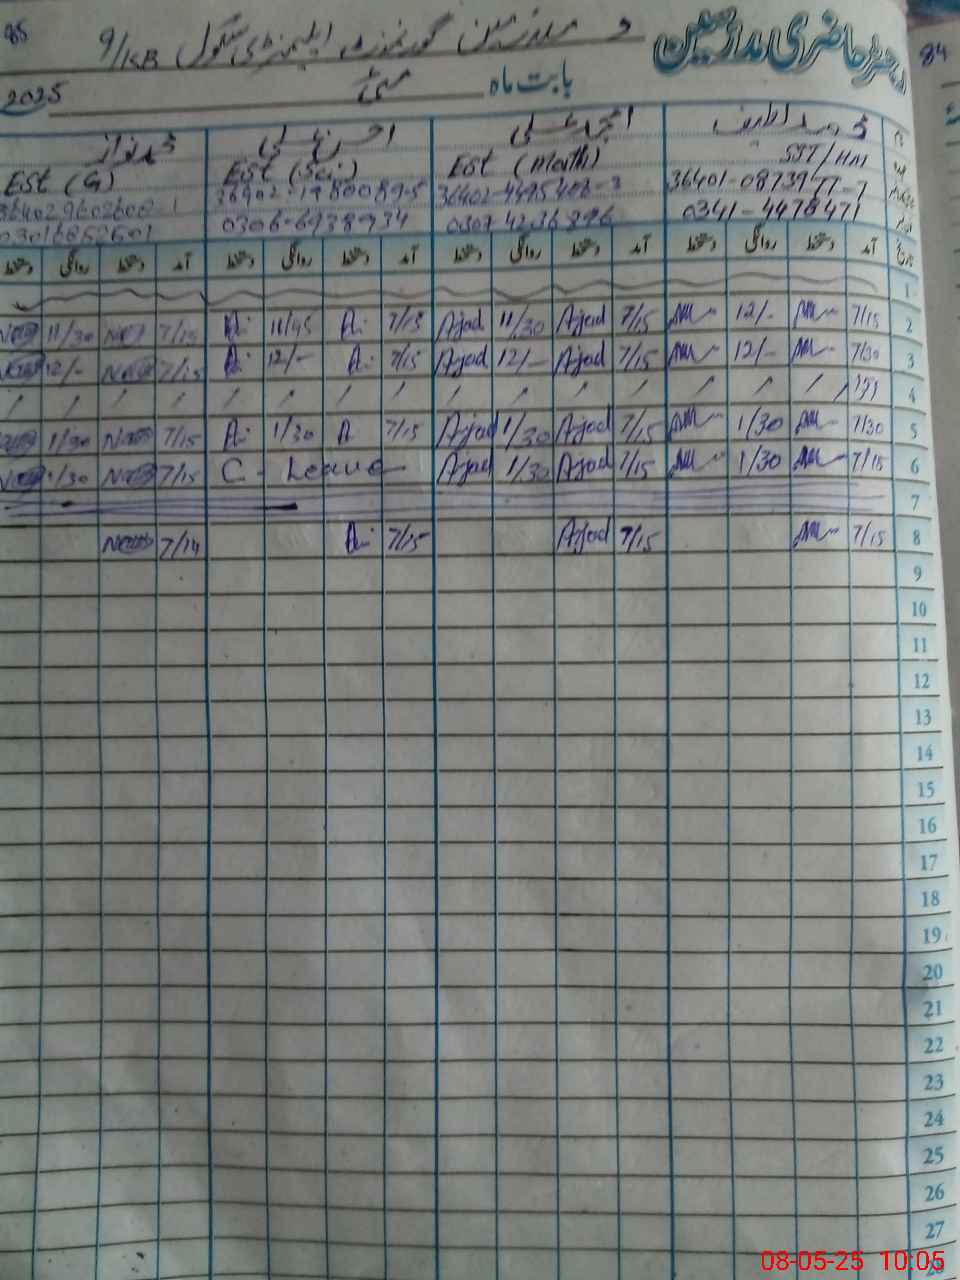 85
84
دفتر حاضری مدارسین
و ملازمین گورنمنٹ ایلیمنٹری سکول 9/KB
بابت ماہ مئی 2025
محمد نواز احسن علی امجد علی
EST (G) EST (Sci) EST (Math) SST/HM
36402-4495408-3 36401-0873977-7
0306-6938934 0307-4236896 0341-4478471
دستخط روانگی دستخط آمد دستخط روانگی دستخط آمد دستخط روانگی دستخط آمد دستخط روانگی دستخط آمد تاریخ
1
11/30 7/15 A: 11/45 A: 7/15 Ajad 11/30 Ajad 7/15 12/- 7/15 2
12/- 7/15 A: 12/- A: 7/15 Ajad 12/- Ajad 7/15 12/- 7/30 3
4
1/30 7/15 A: 1/30 A 7/15 Ajad 1/30 Ajad 7/15 1/30 7/30 5
1/30 7/15 C - Leave Ajad 1/30 Ajad 7/15 1/30 7/15 6
7
7/14 A: 7/15 Ajad 7/15 7/15 8
9
10
11
12
13
14
15
16
17
18
19
20
21
22
23
24
25
26
27
28
08-05-25 10:05